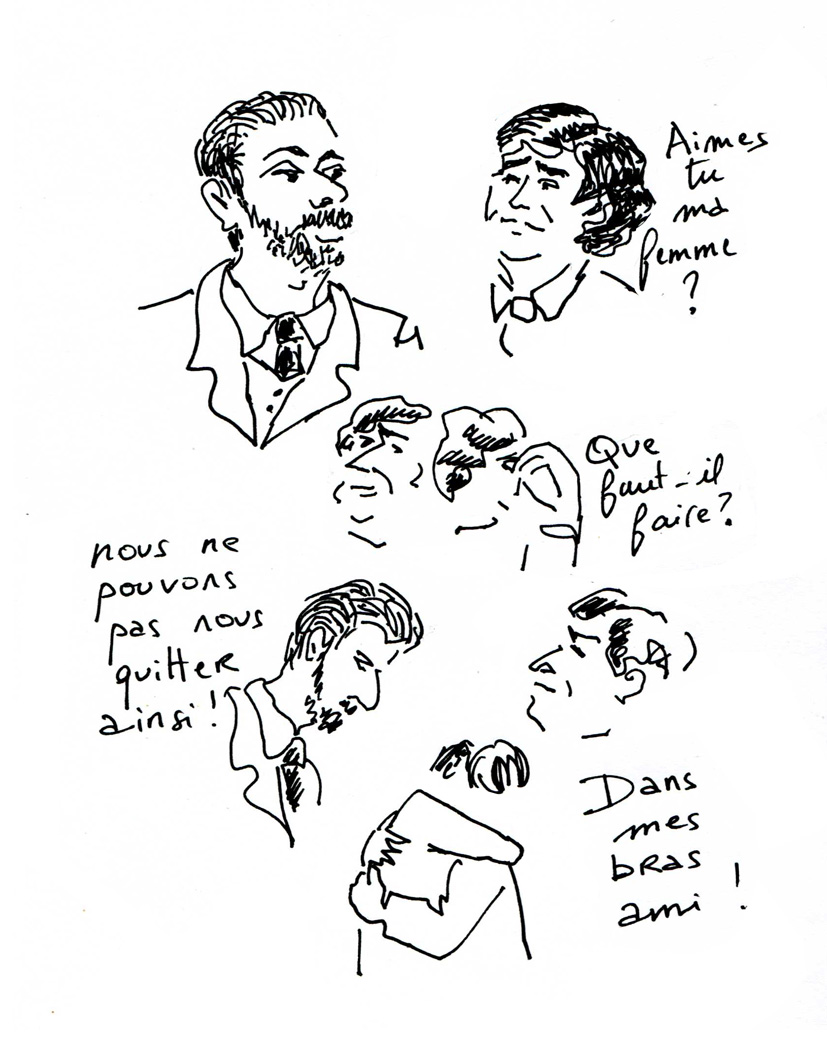 Aimes
tu
ma
femme
?
Que
faut-il
faire?
nous ne
pouvons
pas nous
quitter
ainsi!
Dans
mes
bras
ami !